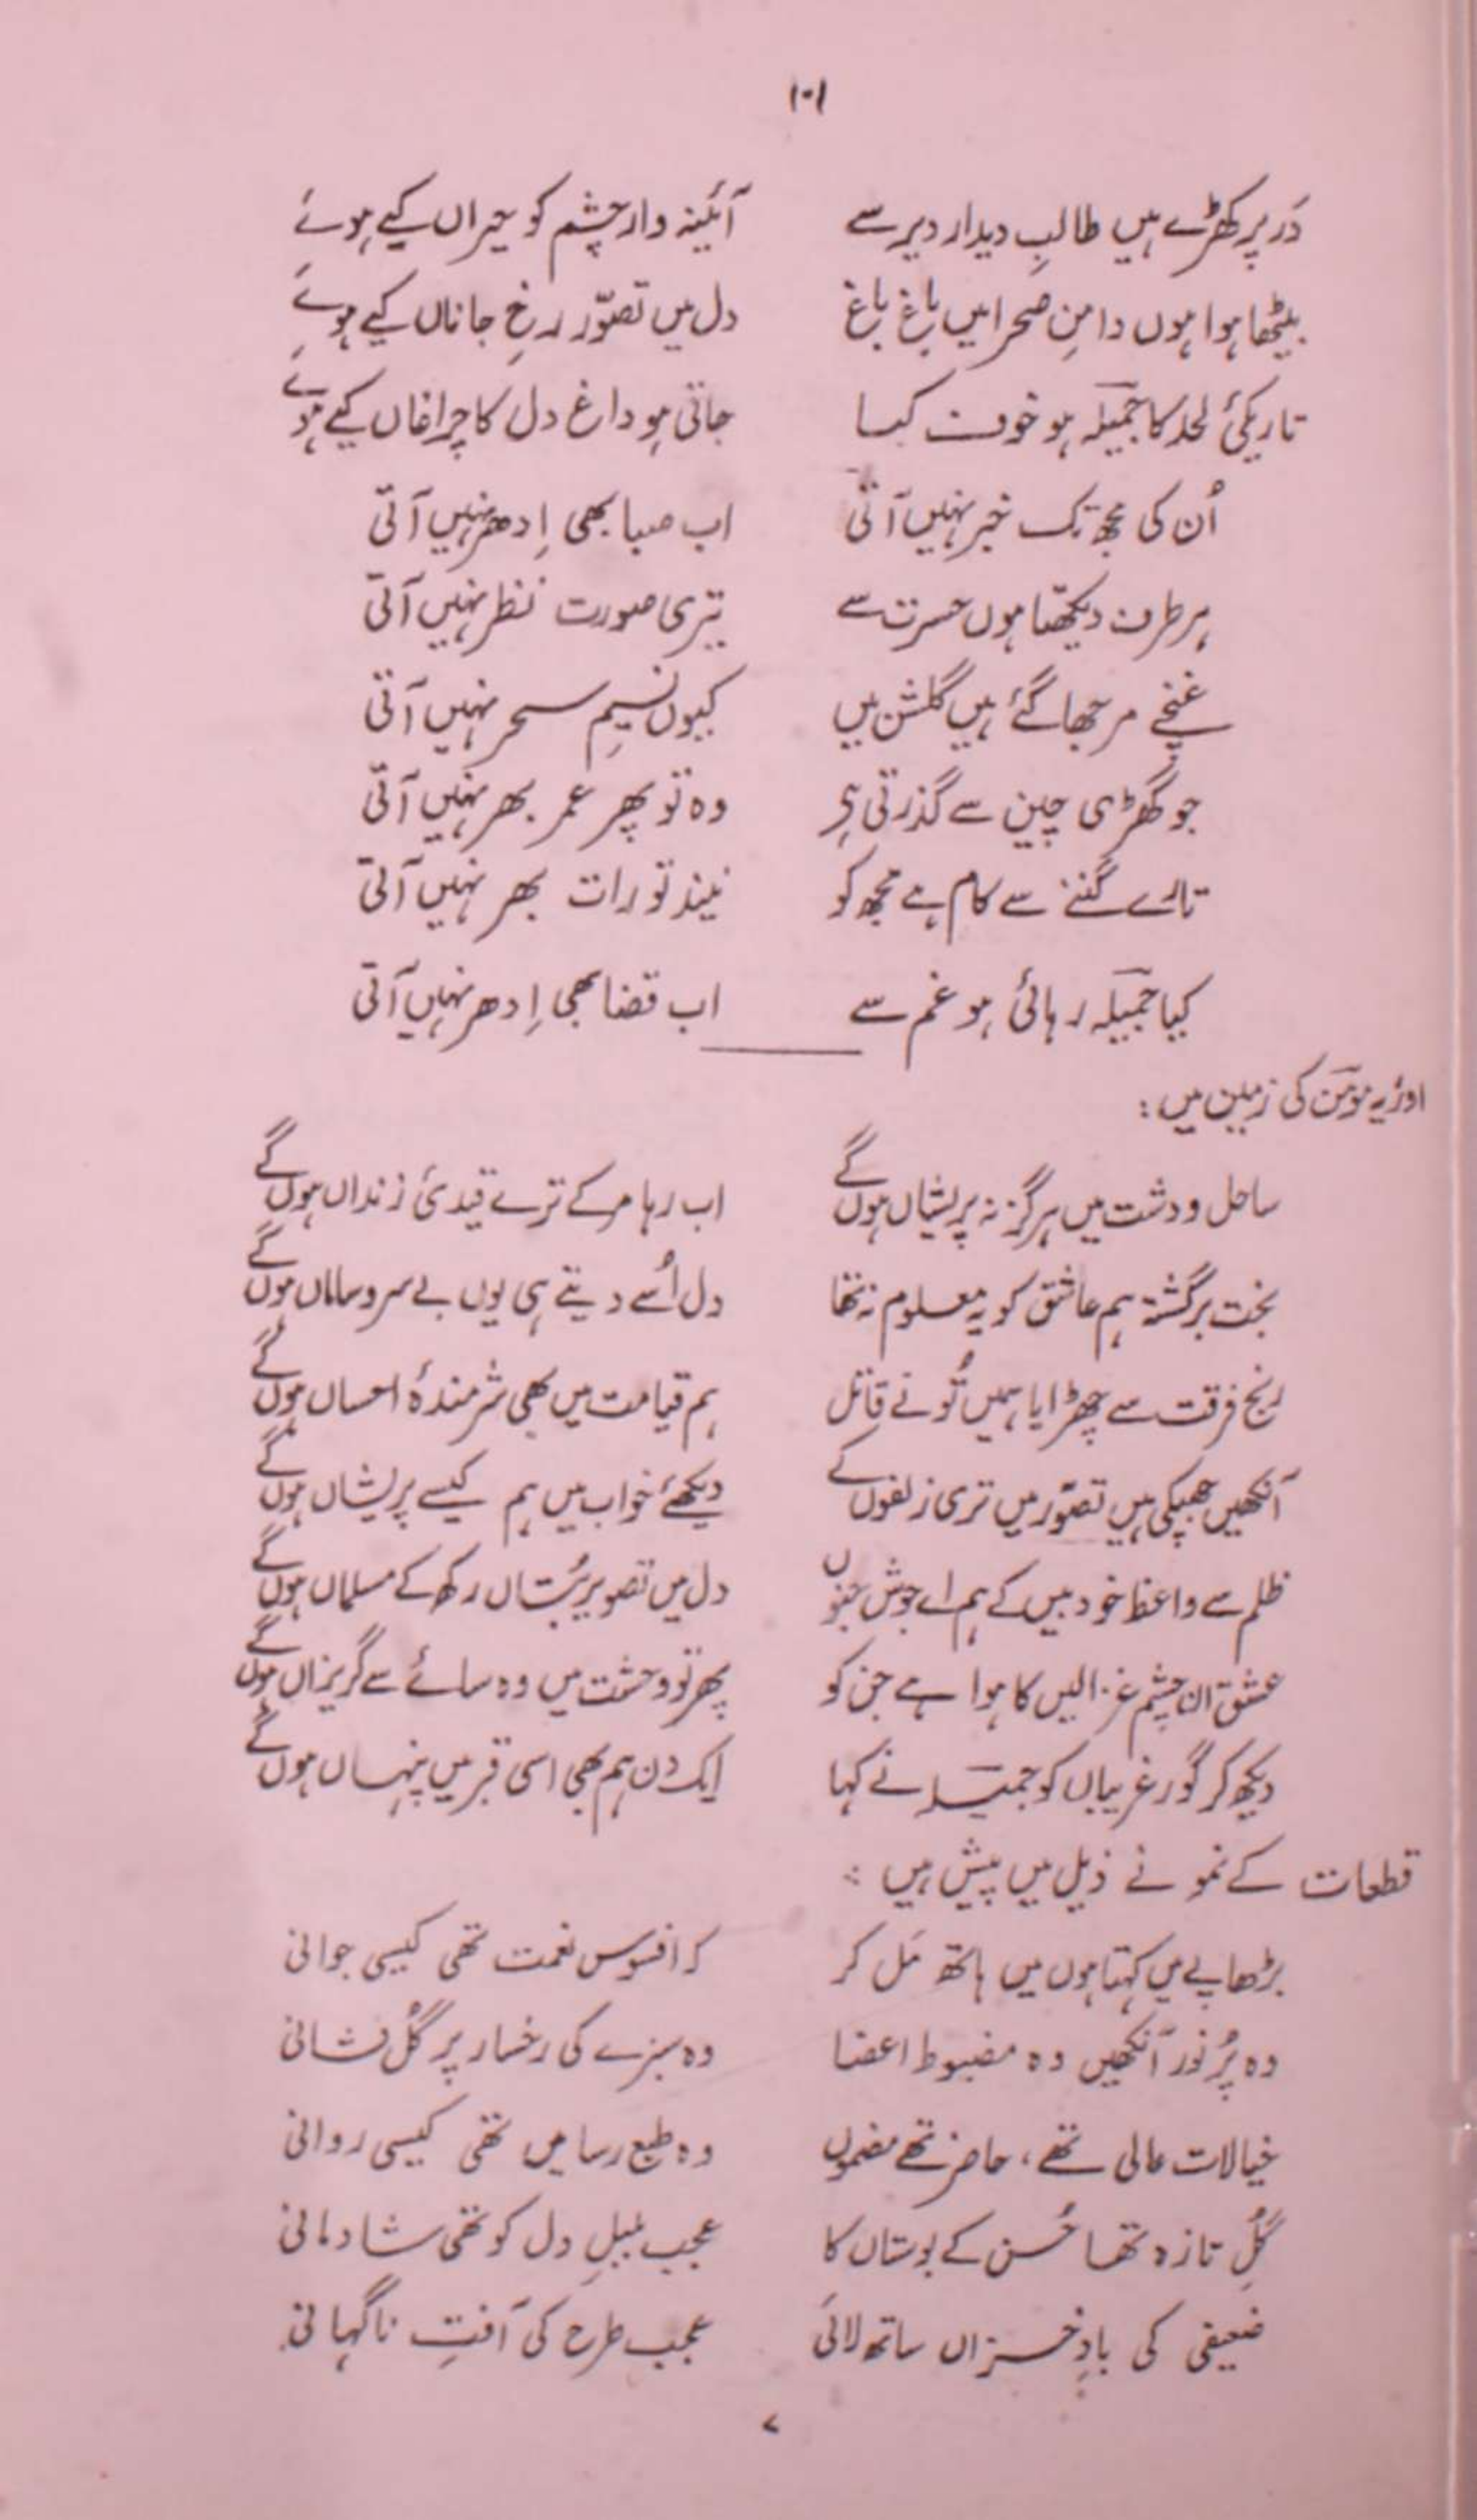 ۱۰۱
دَر پر کھڑے ہیں طالبِ دیدار دیر سے آئینہ وار چشم کو حیراں کیے ہوئے
بیٹھا ہوا ہوں دامنِ صحرا میں باغ باغ دل میں تصوّر رخِ جاناں کیے ہوئے
تاریکیٔ لحد کا جمیلہ ہو خوف کیا جاتی ہو داغ دل کا چراغاں کیے ہوئے
اُن کی مجھ تک خبر نہیں آتی اب صبا بھی اِدھر نہیں آتی
ہر طرف دیکھتا ہوں حسرت سے تیری صورت نظر نہیں آتی
غنچے مرجھا گئے ہیں گلشن میں کیوں نسیمِ سحر نہیں آتی
جو گھڑی چین سے گذرتی ہے وہ تو پھر عمر بھر نہیں آتی
تارے گننے سے کام ہے مجھ کو نیند تو رات بھر نہیں آتی
کیا جمیلہ رہائی ہو غم سے اب قضا بھی اِدھر نہیں آتی
اور یہ مومن کی زمین میں:
ساحل و دشت میں ہرگز نہ پریشاں ہوں گے اب رہا مر کے ترے قیدیٔ زنداں ہوں گے
بخت برگشتہ ہم عاشق کو یہ معلوم نہ تھا دل اُسے دیتے ہی یوں بے سر و ساماں ہوں گے
رنج فرقت سے چھڑایا ہمیں تُو نے قاتل ہم قیامت میں بھی شرمندۂ احساں ہوں گے
آنکھیں جھپکی ہیں تصوّر میں تری زلفوں کے دیکھئے خواب میں ہم کیسے پریشاں ہوں گے
ظلم سے واعظ خود بیں کے ہم اے جوش جنوں دل میں تصویر بُتاں رکھ کے مسلماں ہوں گے
عشق ان چشم غزالیں کا ہوا ہے جن کو پھر تو وحشت میں وہ سائے سے گریزاں ہوں گے
دیکھ کر گور غریباں کو جمیلہ نے کہا ایک دن ہم بھی اسی قبر میں پنہاں ہوں گے
قطعات کے نمونے ذیل میں پیش ہیں :
بڑھاپے میں کہتا ہوں میں ہاتھ مَل کر کہ افسوس نعمت تھی کیسی جوانی
وہ پُر نور آنکھیں وہ مضبوط اعضا وہ سبزے کی رخسار پر گُل فشانی
خیالات عالی تھے، حاضر تھے مضموں وہ طبع رسا میں تھی کیسی روانی
گُلِ تازہ تھا حُسن کے بوستاں کا عجب بلبلِ دل کو تھی شادمانی
ضعیفی کی بادِ خزاں ساتھ لائی عجب طرح کی آفتِ ناگہانی
۷